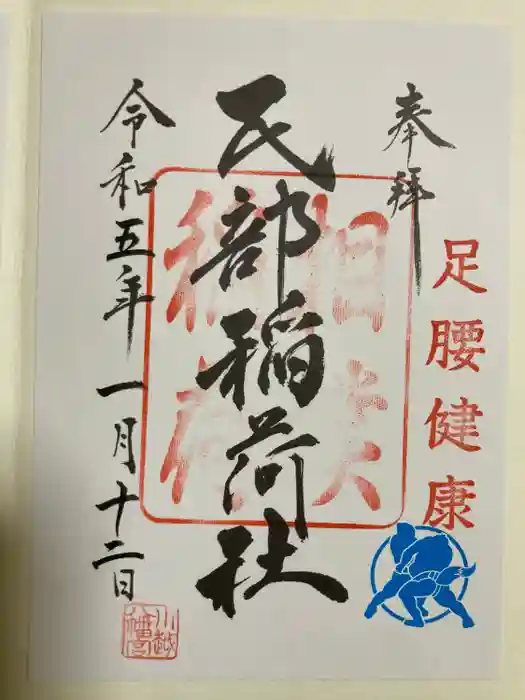 奉拝
足腰健康
民部稲荷社
相撲稲荷
令和五年一月十二日